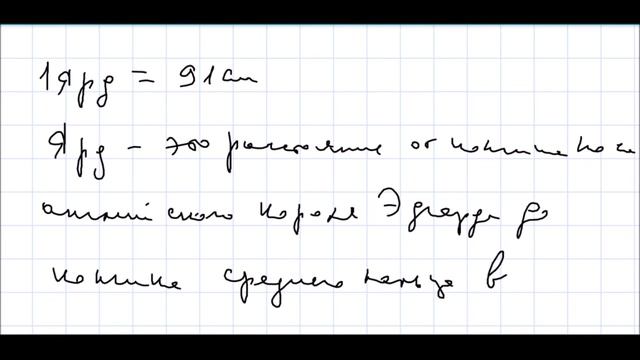 1 Ярд = 91 см
Ярд - это расстояние от кончика носа
английского короля Эдгарда до
кончика среднего пальца в